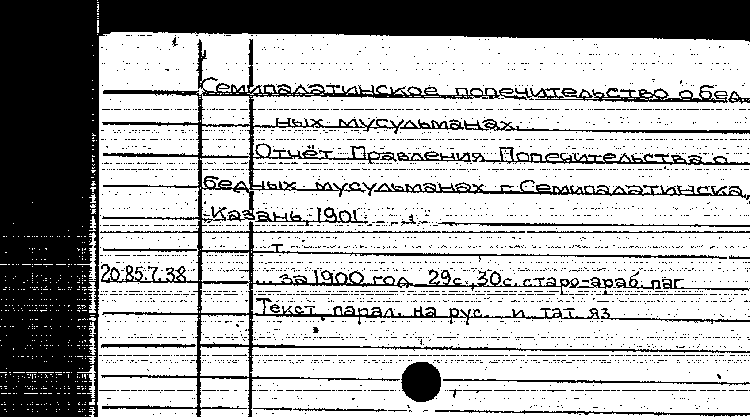 Семипалатинское попечительство о бед
ных мусульманах.
Отчёт Правления Попечительства о
бедных мусульманах г. Семипалатинска,
-Казань, 1901.
т.
20.85.7.38 ... за 1900 год 29с., 30с. старо-араб. паг
Текст парал. на рус. и тат яз